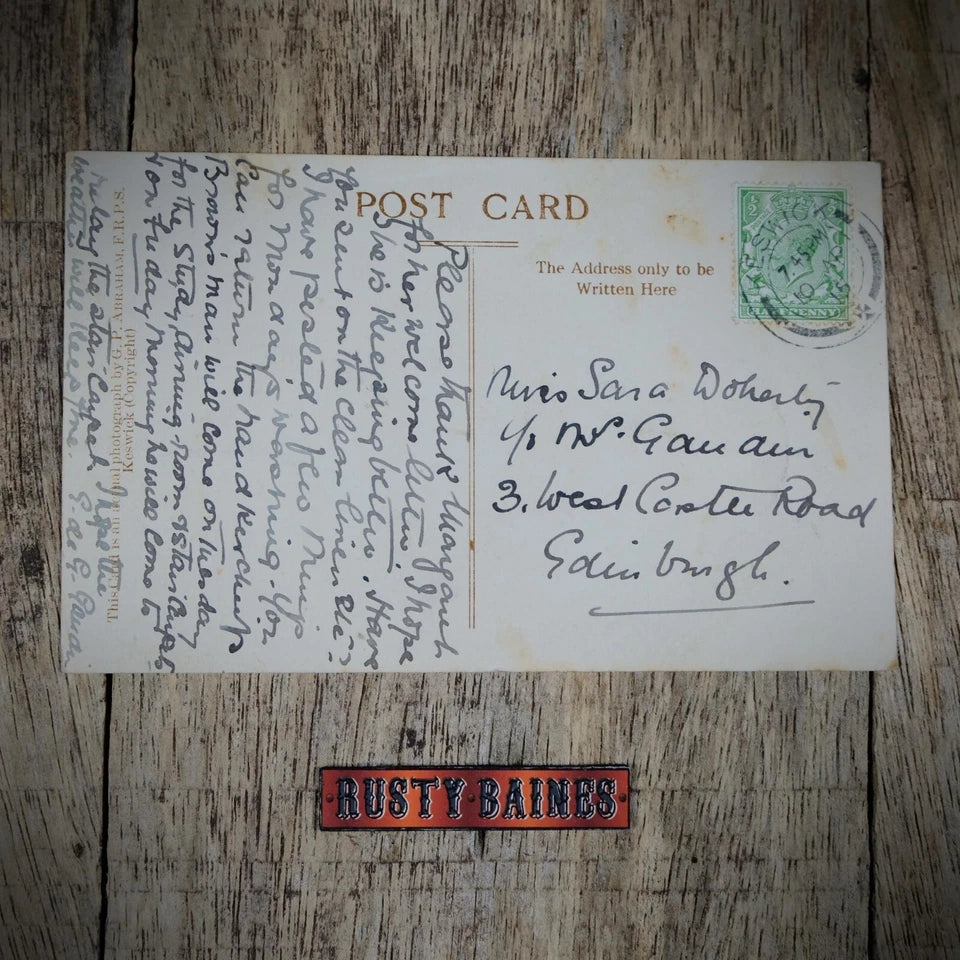 POST CARD
The Address only to be
Written Here
Miss Sara Doherty
c/o Mrs. Gandar
3. West Castle Road
Edinburgh.
Please thank Margaret
for her welcome letter. I hope
She is keeping better. Have
you sent on the clean linen etc?
I have posted a few things
for Monday's washing. You
can return the handkerchiefs
Brown's man will come on Tuesday
for the Study, dining-room & stair Carpets
& on Friday Morning he will come to
relay the stair Carpet. I hope the
weather will keep fine.
This is an original photograph by G. P. ABRAHAM, F.R.P.S.
Keswick (Copyright)
KESWICK
7.45 PM
10
15
½
HALFPENNY
RUSTY·BAINES